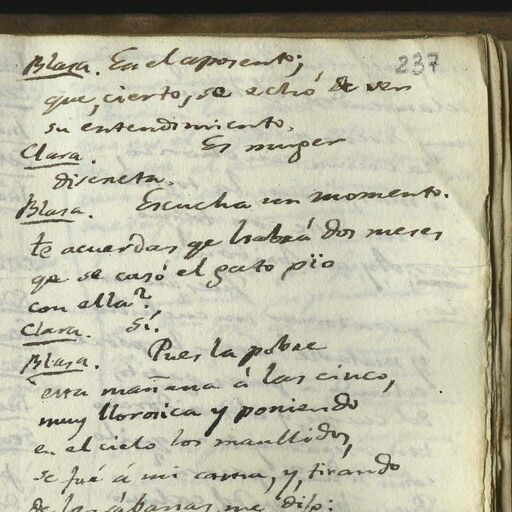 237
Blasa. En el aposento;
que, cierto, se echó de ver
su entendimiento.
Clara. Es muger
discreta.
Blasa. Escucha un momento.
te acuerdas qe habrá dos meses
qe se casó el gato pïo
con ella?
Clara. Sí.
Blasa. Pues la pobre
esta mañana á las cinco,
muy llorosica y poniendo
en el cielo los maullidos,
se fué á mi cama, y, tirando
de las sábanas, me dijo: